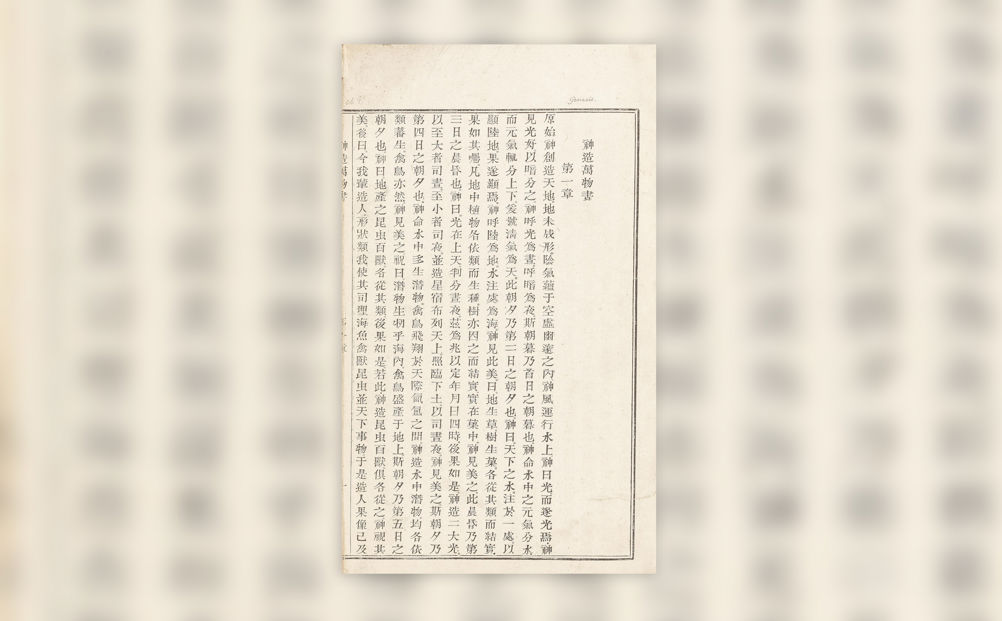 Genesis.
神造萬物書
第一章
原始神創造天地地未成形陰氣蘊于空虛幽邃之內神風運行水上神曰光而遂光焉神
見光好以暗分之神呼光為晝呼暗為夜斯朝暮乃首日之朝暮也神命水中之元氣分水
而元氣輒分上下爰號清氣為天此朝夕乃第二日之朝夕也神曰天下之水注於一處以
顯陸地果遂顯焉神呼陸為地水注處為海神見此美曰地生草樹生菓各從其類而結實
果如其囑凡地中植物各依類而生種樹亦因之而結實實在菓中神見美之此晨昏乃第
三日之晨昏也神曰光在上天判分晝夜茲為兆以定年月日四時後果如是神造二大光
以至大者司晝至小者司夜並造星宿布列天上照臨下土以司晝夜神見美之斯朝夕乃
第四日之朝夕也神命水中多生潛物禽鳥飛翔於天際氤氳之間神造水中潛物均各依
類蕃生禽鳥亦然神見美之祝曰潛物生牣乎海內禽鳥盛產于地上斯朝夕乃第五日之
朝夕也神曰地產之昆虫百獸各從其類後果如是若此神造昆虫百獸俱各從之神視其
美後曰今我輩造人形狀類我使其司理海魚禽獸昆虫並天下事物于是造人果僅已及
神造萬物書